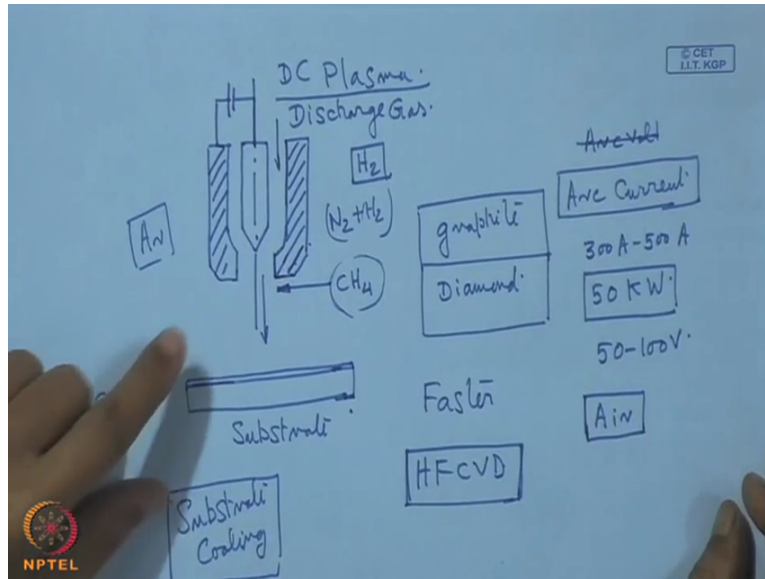 © CET
I.I.T. KGP
DC Plasma.
Discharge Gas.
H2
(N2+H2)
CH4
Ar
Substrate
Substrate
Cooling
graphite
Diamond.
Faster
HFCVD
Arc Volt
Arc Current.
300A-500A
50 KW.
50-100V.
Air
NPTEL